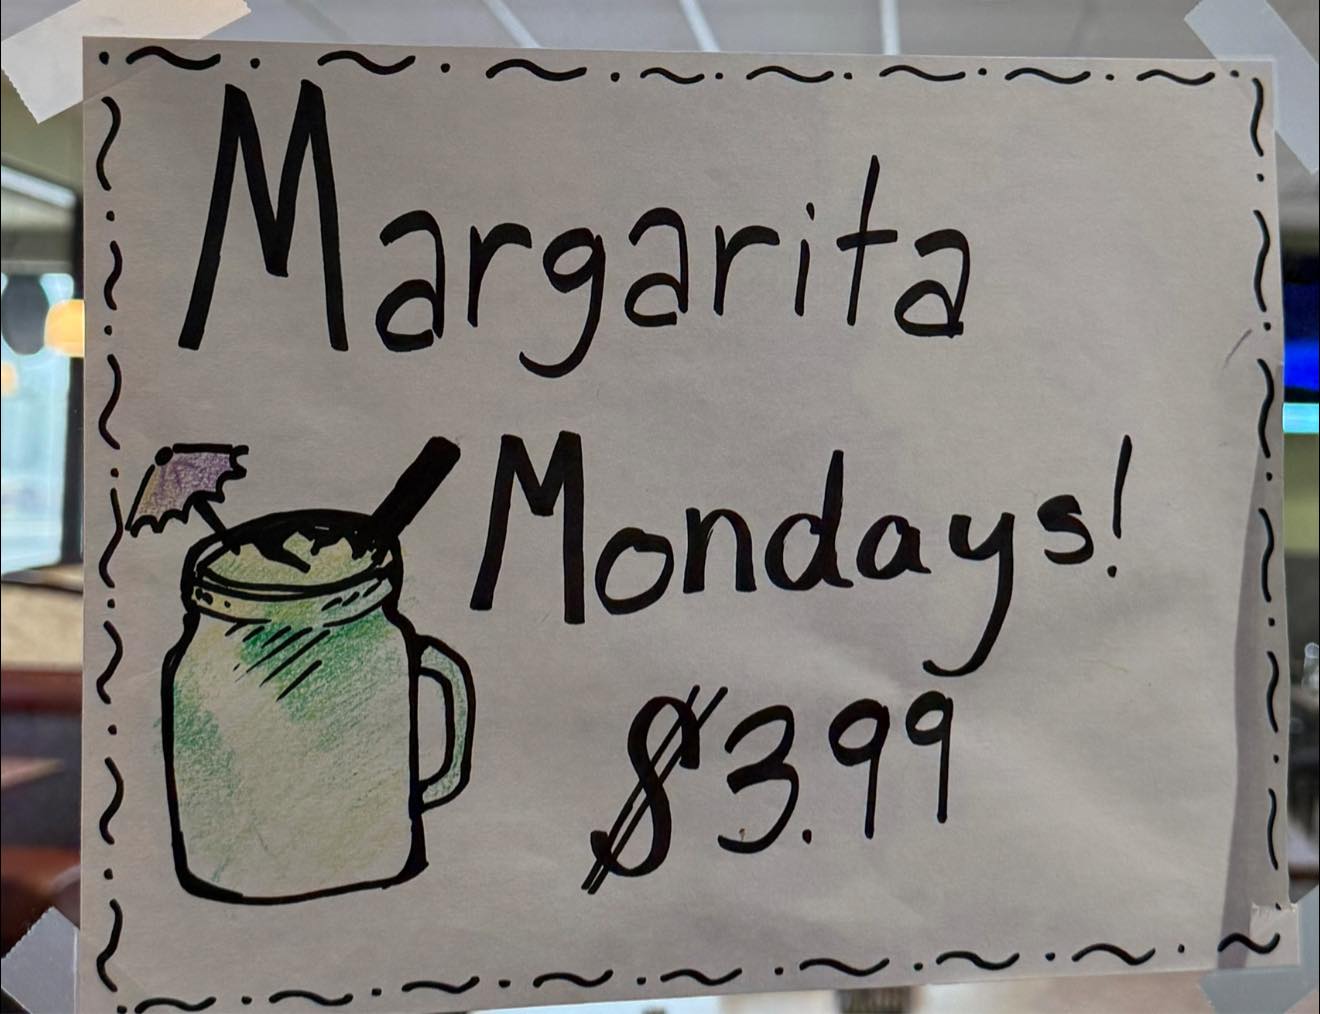 Margarita
Mondays!
$3.99